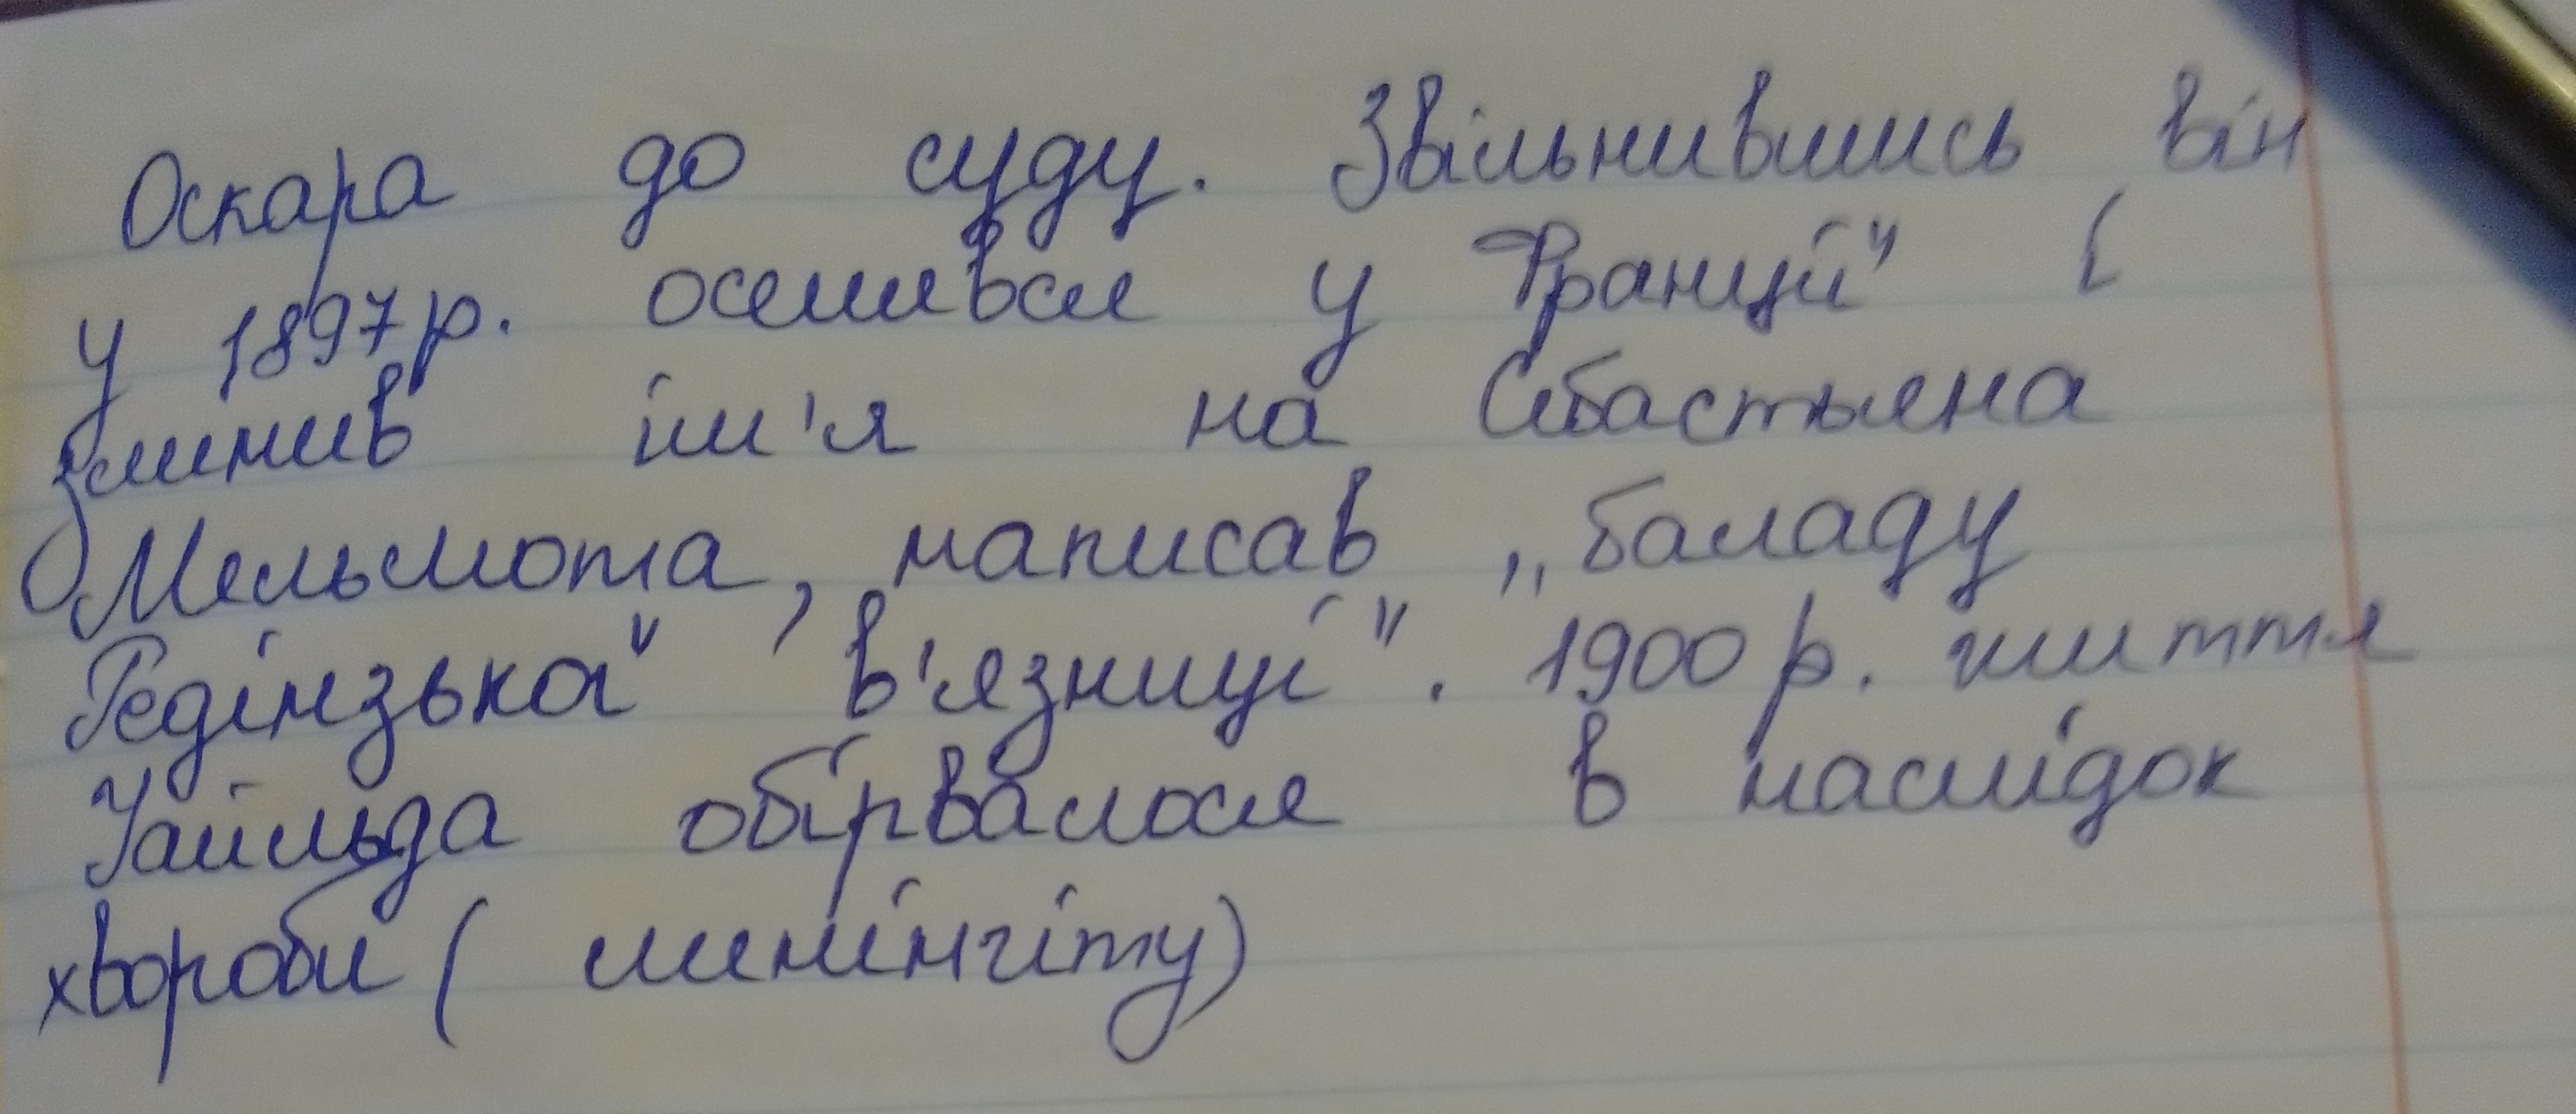 Оскара до суду. Звільнившись він
у 1897р. оселився у Франції і
змінив ім'я на Себастьяна
Мельмота, написав „баладу
Редінзької в'язниці". 1900 р. життя
Уайльда обірвалося в наслідок
хвороби ( менінгіту)